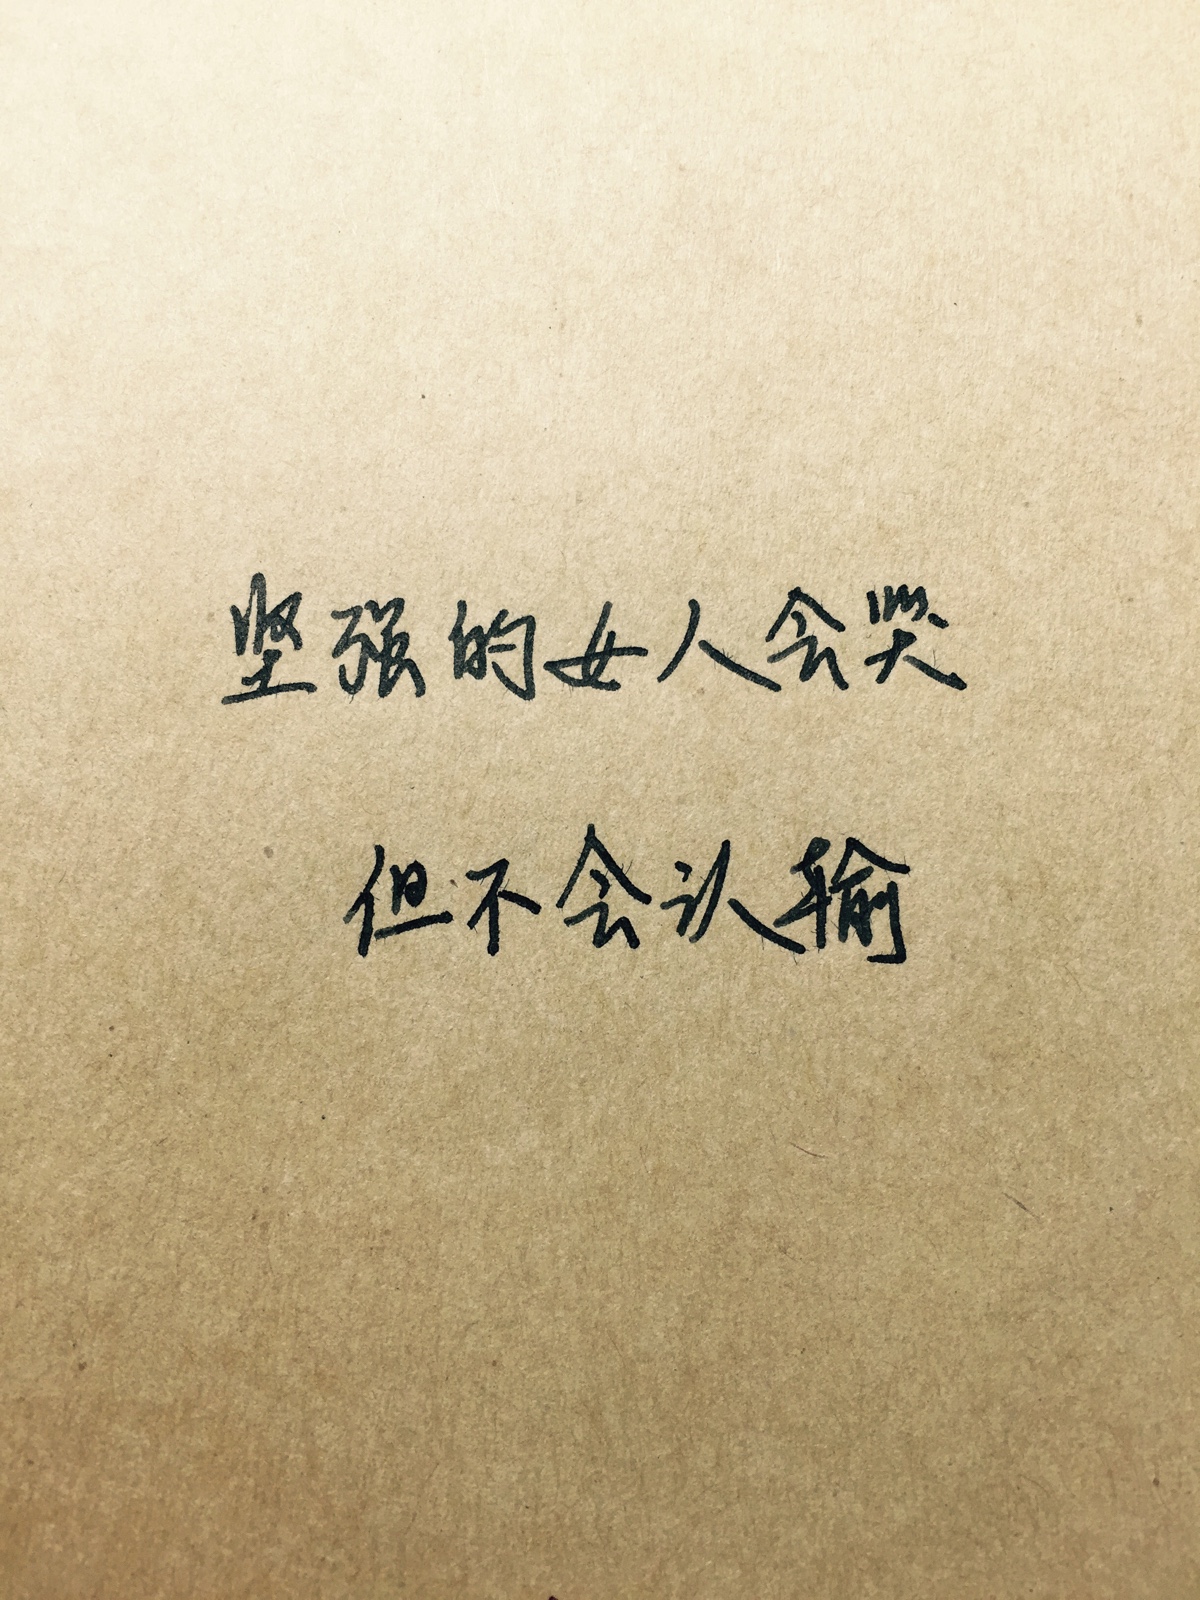 坚强的女人会哭
但不会认输